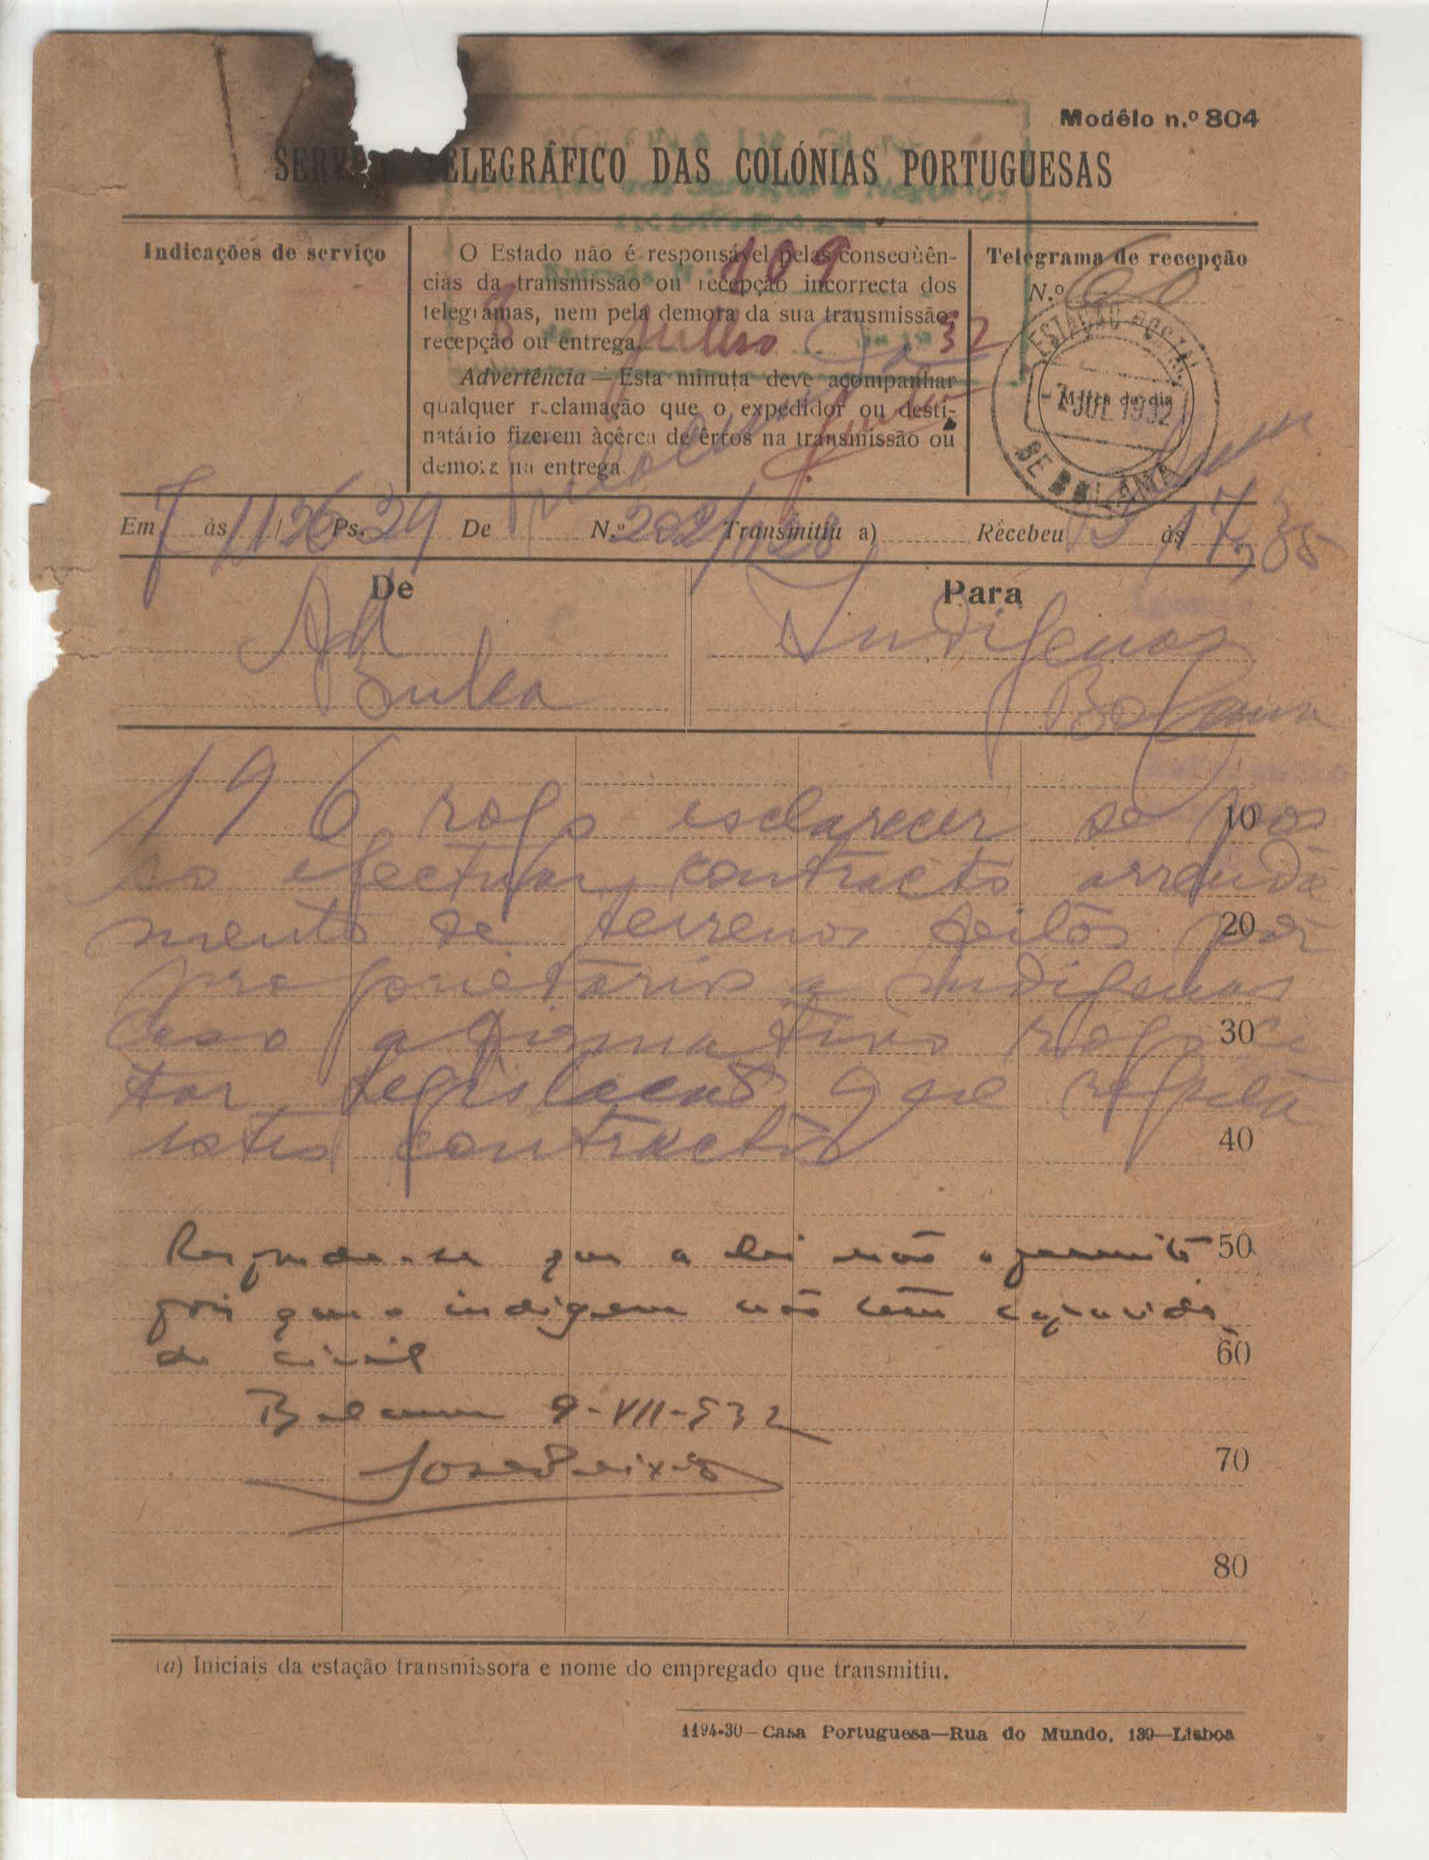 Modêlo n.º 804
TELEGRÁFICO DAS COLÓNIAS PORTUGUESAS
Indicações de serviço
O Estado não é responsável pelas conseqüên-
cias da transmissão ou recepção incorrecta dos
telegramas, nem pela demora da sua transmissão,
recepção ou entrega.
Advertência — Esta minuta deve acompanhar
qualquer reclamação que o expedidor ou desti-
natário fizerem àcêrca de êrros na transmissão ou
demora na entrega
109
8 Julho 32
Telegrama de recepção
N.º 60
ESTAÇÃO POSTAL
7 JUL 1932
DE BOLAMA
Em 7 às 11/26 Ps. 29 De N.º 202/ Transmitiu a) Recebeu às 17,35
De
Para
Ad
Indigenas
Bula
Bolama
196 rogo esclarecer se pos
so efectuar contracto arrenda
mento de terrenos feitos por
proprietarios a indigenas
caso afirmativo rogo ci
tar legislacao que regula
estes contractos
10
20
30
40
50
60
70
80
Responda-se que a lei não o permite
pois que o indigena não tem capacida
de civil
Bolama 9-VII-932
José Peixoto
(a) Iniciais da estação transmissora e nome do empregado que transmitiu.
1194-30 — Casa Portuguesa—Rua do Mundo, 139—Lisboa